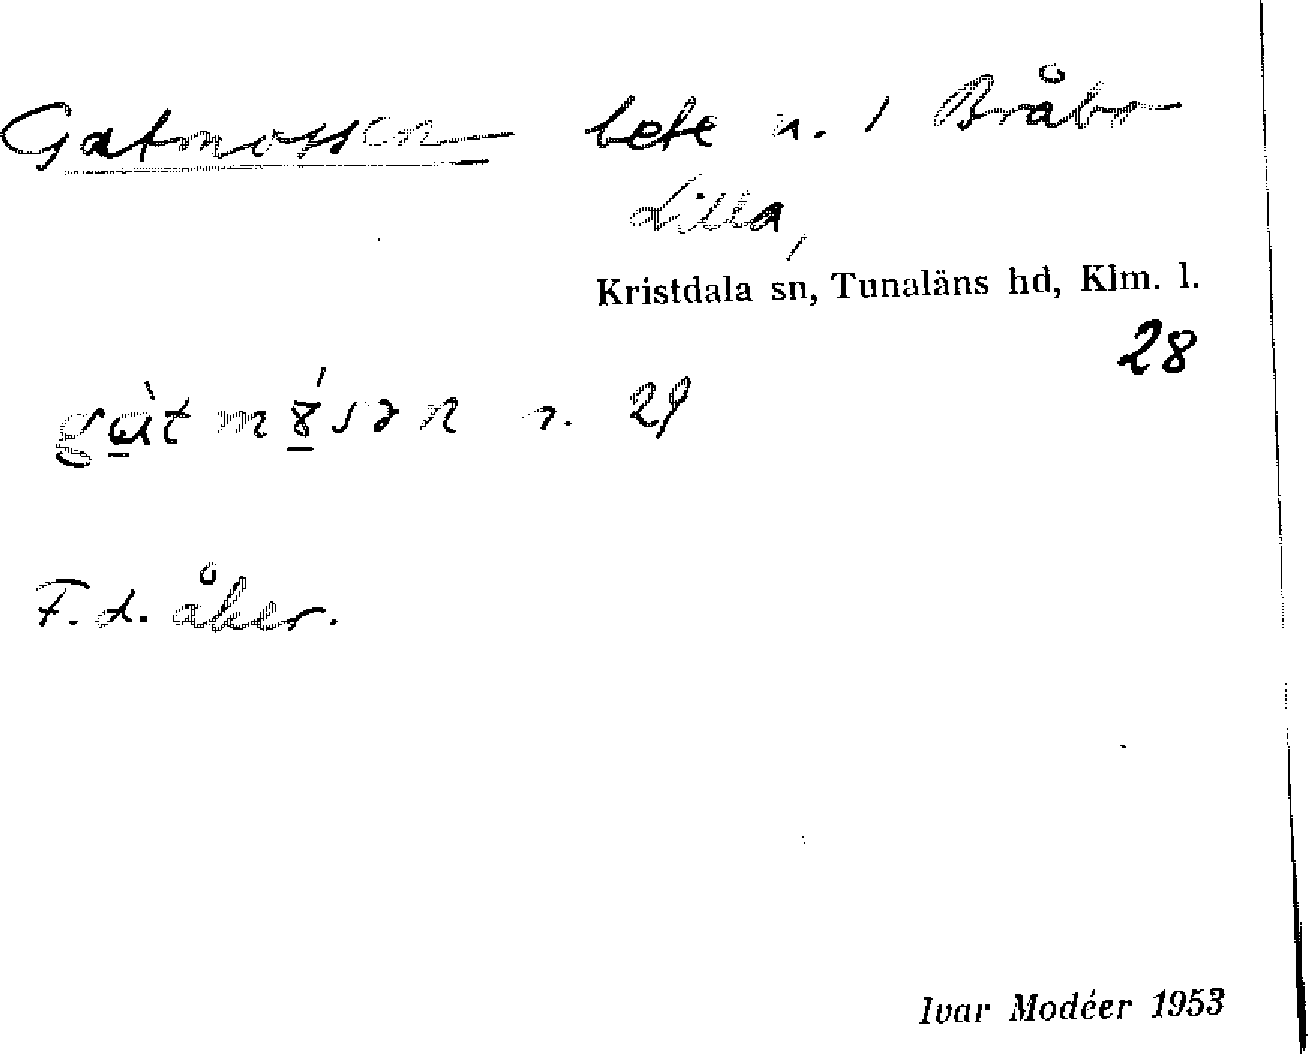 Gatmossen bete n. 1 Bråbo
Lilla,
Kristdala sn, Tunaläns hd, Klm. l.
28
gàt mó̱sən n. 29
F.d. åker.
Ivar Modéer 1953